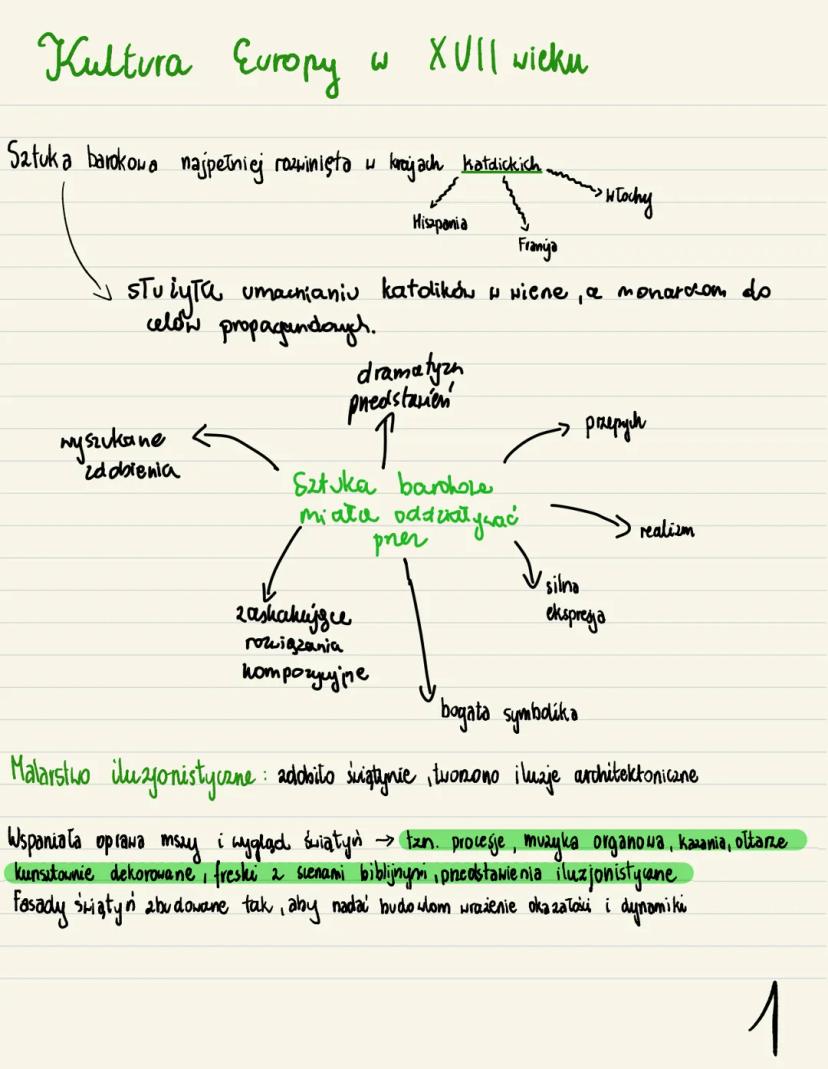 Kultura Europy w XVII wieku
Sztuka barokowa najpełniej rozwinięta w krajach katolickich
Włochy
Hiszpania
Francja
służyła umacnianiu katolików w wierze, a monarchom do
celów propagandowych.
dramatyzm
przedstawień
wyszukane
zdobienia
przepych
Sztuka barokowa
miała oddziaływać
przez
realizm
silna
ekspresja
zaskakujące
rozwiązania
kompozycyjne
bogata symbolika
Malarstwo iluzjonistyczne: zdobiło świątynie, tworzono iluzje architektoniczne
Wspaniała oprawa mszy i wygląd świątyń → tzn. procesje, muzyka organowa, kazania, ołtarze
kunsztownie dekorowane, freski z scenami biblijnymi, przedstawienia iluzjonistyczne
Fasady świątyń zbudowane tak, aby nadać budowlom wrażenie okazałości i dynamiki
1